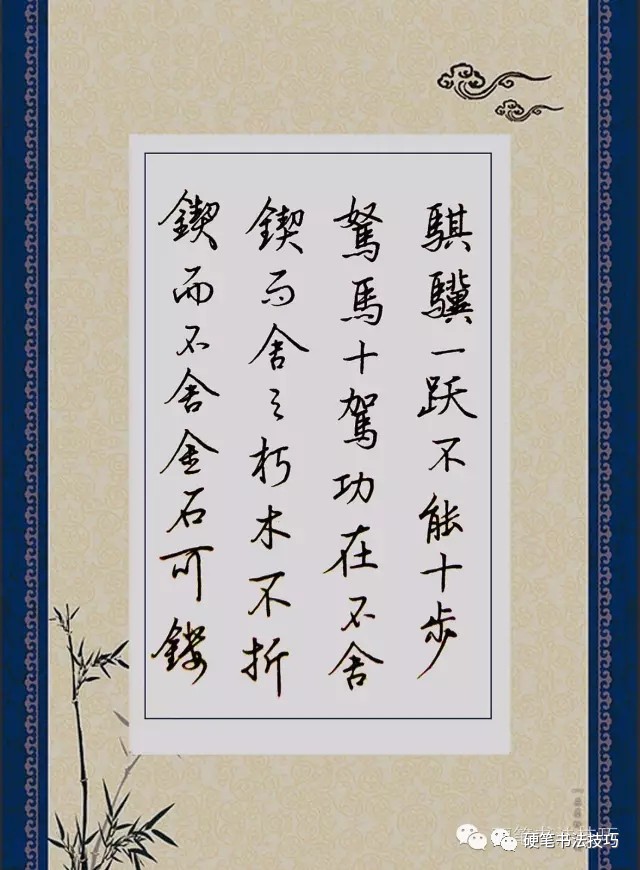 騏驥一跃不能十步
駑馬十駕功在不舍
鍥而舍之朽木不折
鍥而不舍金石可鏤
硬笔书法技巧